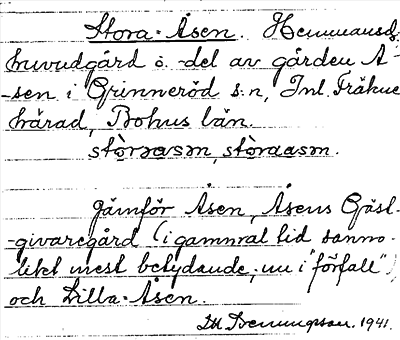 Stora-Åsen. Hemmansdj.
huvudgård o. -del av gården Å-
-sen i Grinneröd s:n, Inl. Fräkne
härad, Bohus län.
stòraasm, stòraasm.
Jämför Åsen, Åsens Gäst-
-givaregård (i gammal tid sanno-
likt mest betydande, nu i "förfall")
och Lilla-Åsen.
1941.